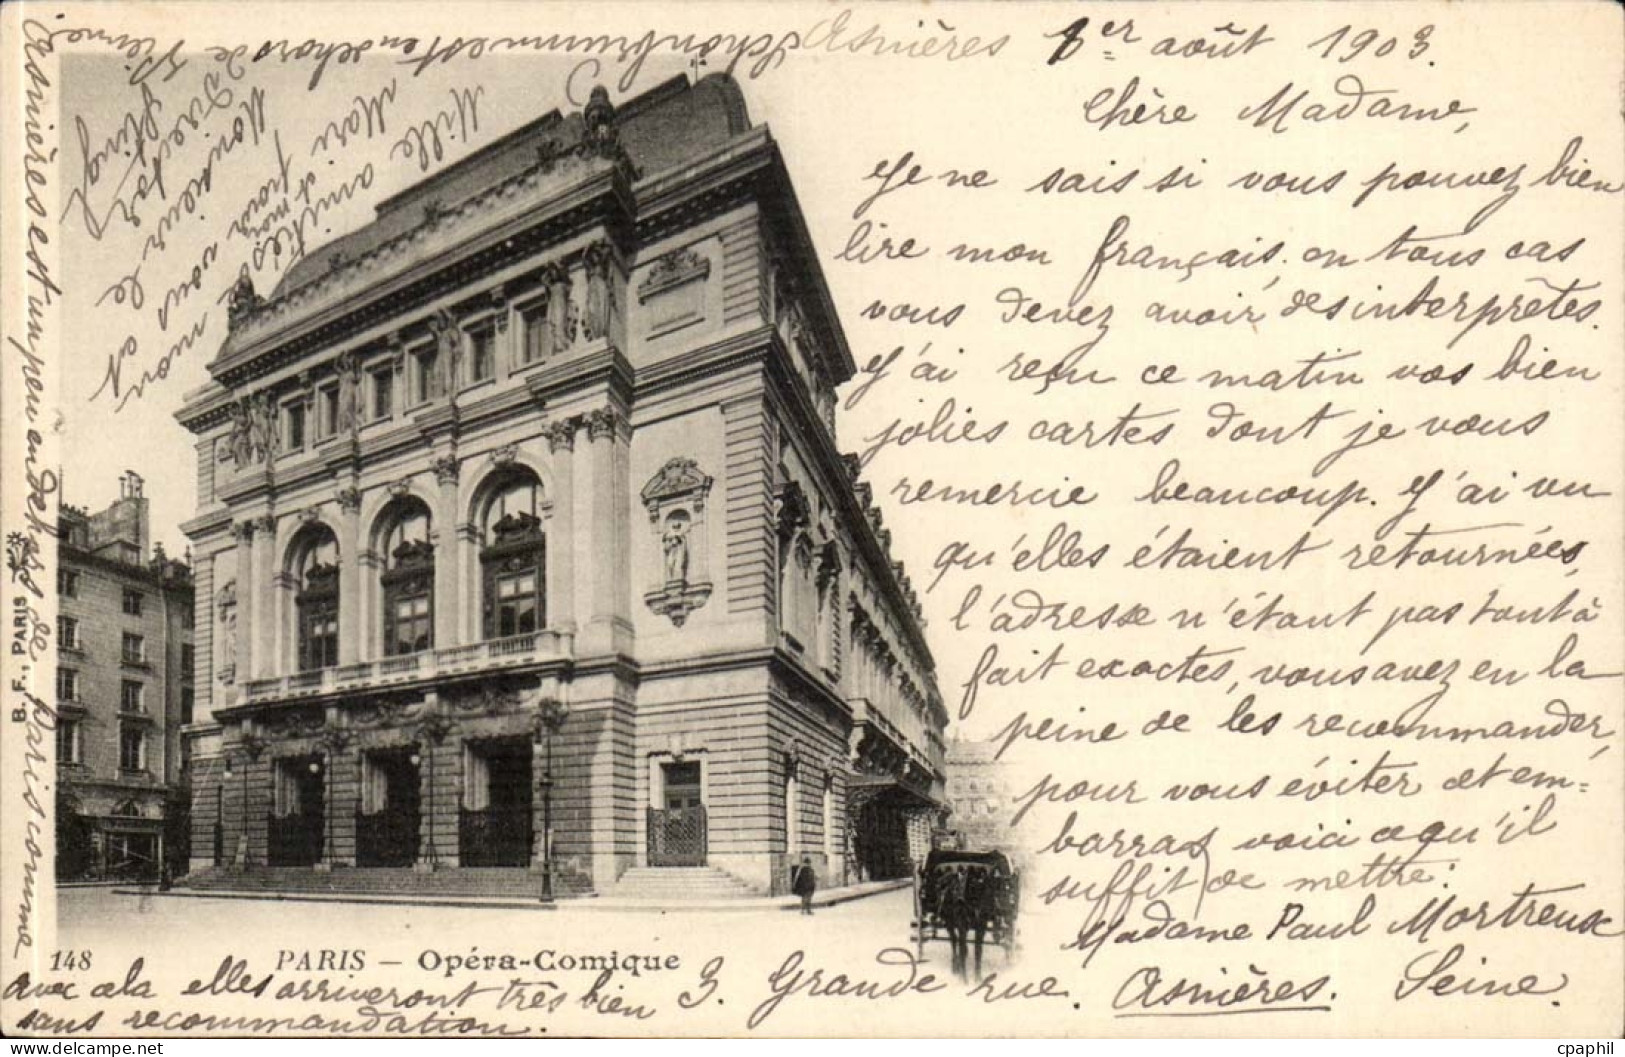 Asnières 1er août 1903.
Chère Madame,
Je ne sais si vous pouvez bien
lire mon français, en tous cas
vous devez avoir des interprêtes.
J'ai reçu ce matin vos bien
jolies cartes dont je vous
remercie beaucoup. J'ai vu
qu'elles étaient retournées,
l'adresse n'étant pas tout à
fait exactes, vous avez eu la
peine de les recommander,
pour vous éviter cet em=
barras voici ce qu'il
suffit de mettre:
Madame Paul Mortreux
3. Grande rue. Asnières. Seine.
avec cela elles arriveront très bien
sans recommandation.
Asnières est un peu en dehors de Paris comme
Schönbrunn est en dehors de Vienne
Mille amitiés de mon
Mari et moi pour vous et
Monsieur le
Directeur
148 PARIS — Opéra-Comique
B. F., PARIS
cpaphil